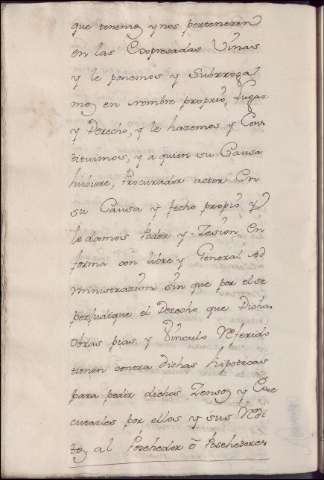 que tenemos y nos pertenecen
en las Expresadas Viñas
y le ponemos y Subrroga
mos en nombre proprio, lugar
y Derecho, y le hazemos y Con
stituimos, y a quien su Causa
hubiere, Procurador actor en
su Causa y fecho propio y
le damos Poder y Zesion en
forma con libre y General ad
ministrazion sin que por el se
perjudique el Derecho que Dichas
obras pias, y Vinculo Referido
tienen contra dichas hipotecas
para pedir dichos Zensos y Exe
cutarles por ellos y sus Redi
tos al Posehedor o Posehedores